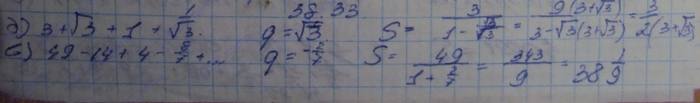 38 33
д) 3+√3 + 1 + 1/√3. q = √3/3 S = 3/(1 - √3/3) = 9(3+√3)/(3-√3(3+√3)) = 3/2(3+√3)
б) 49-14+4-8/7+... q = -2/7 S = 49/(1+2/7) = 343/9 = 38 1/9